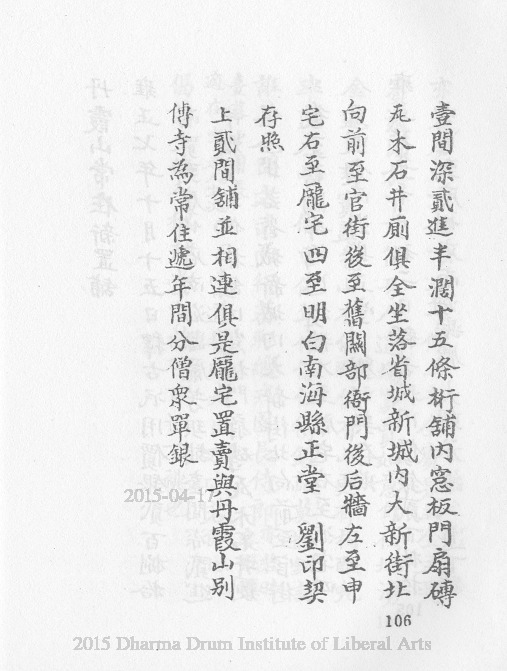 壹間深貳進半濶十五條桁舖内窓板門扇磚
瓦木石井廁俱全坐落省城新城内大新街北
向前至官街後至舊關部衙門後后牆左至申
宅右至龎宅四至明白南海縣正堂 劉印契
存照
上貳間舖並相連俱是龎宅置賣與丹霞山别
傳寺為常住遞年間分僧衆單銀
106
2015-04-17
2015 Dharma Drum Institute of Liberal Arts